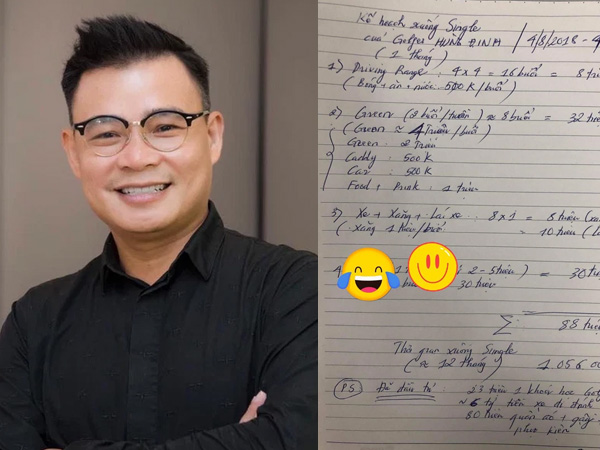 Kế hoạch xuống Single
của Golfer HUNG ĐINH / 4/8/2018 - 4
( 1 tháng )
1) Driving Range : 4 x 4 = 16 buổi = 8 triệ
( Bóng + ăn + nước : 500 K / buổi )
2) Green (2 buổi / tuần) ≈ 8 buổi = 32 triệ
( Green ≈ 4 Triệu / buổi )
Green : 2 Triệu
Caddy : 500 K
Car : 500 K
Food + Drink : 1 triệu
3) Xe + Xăng + Lái xe : 8 x 1 = 8 triệu
( Xăng 1 triệu / buổi = 10 triệu
4 2 - 5 triệu ) = 30 triệ
30 triệu
Σ 88 triệ
Thời gian xuống Single
( ≈ 12 tháng ) 1 056 00
P.S Đã đầu tư : 23 triệu 1 khóa học Gol
≈ 6 tỷ tiền xe đi đánh
80 triệu quần áo + giày
phụ kiện